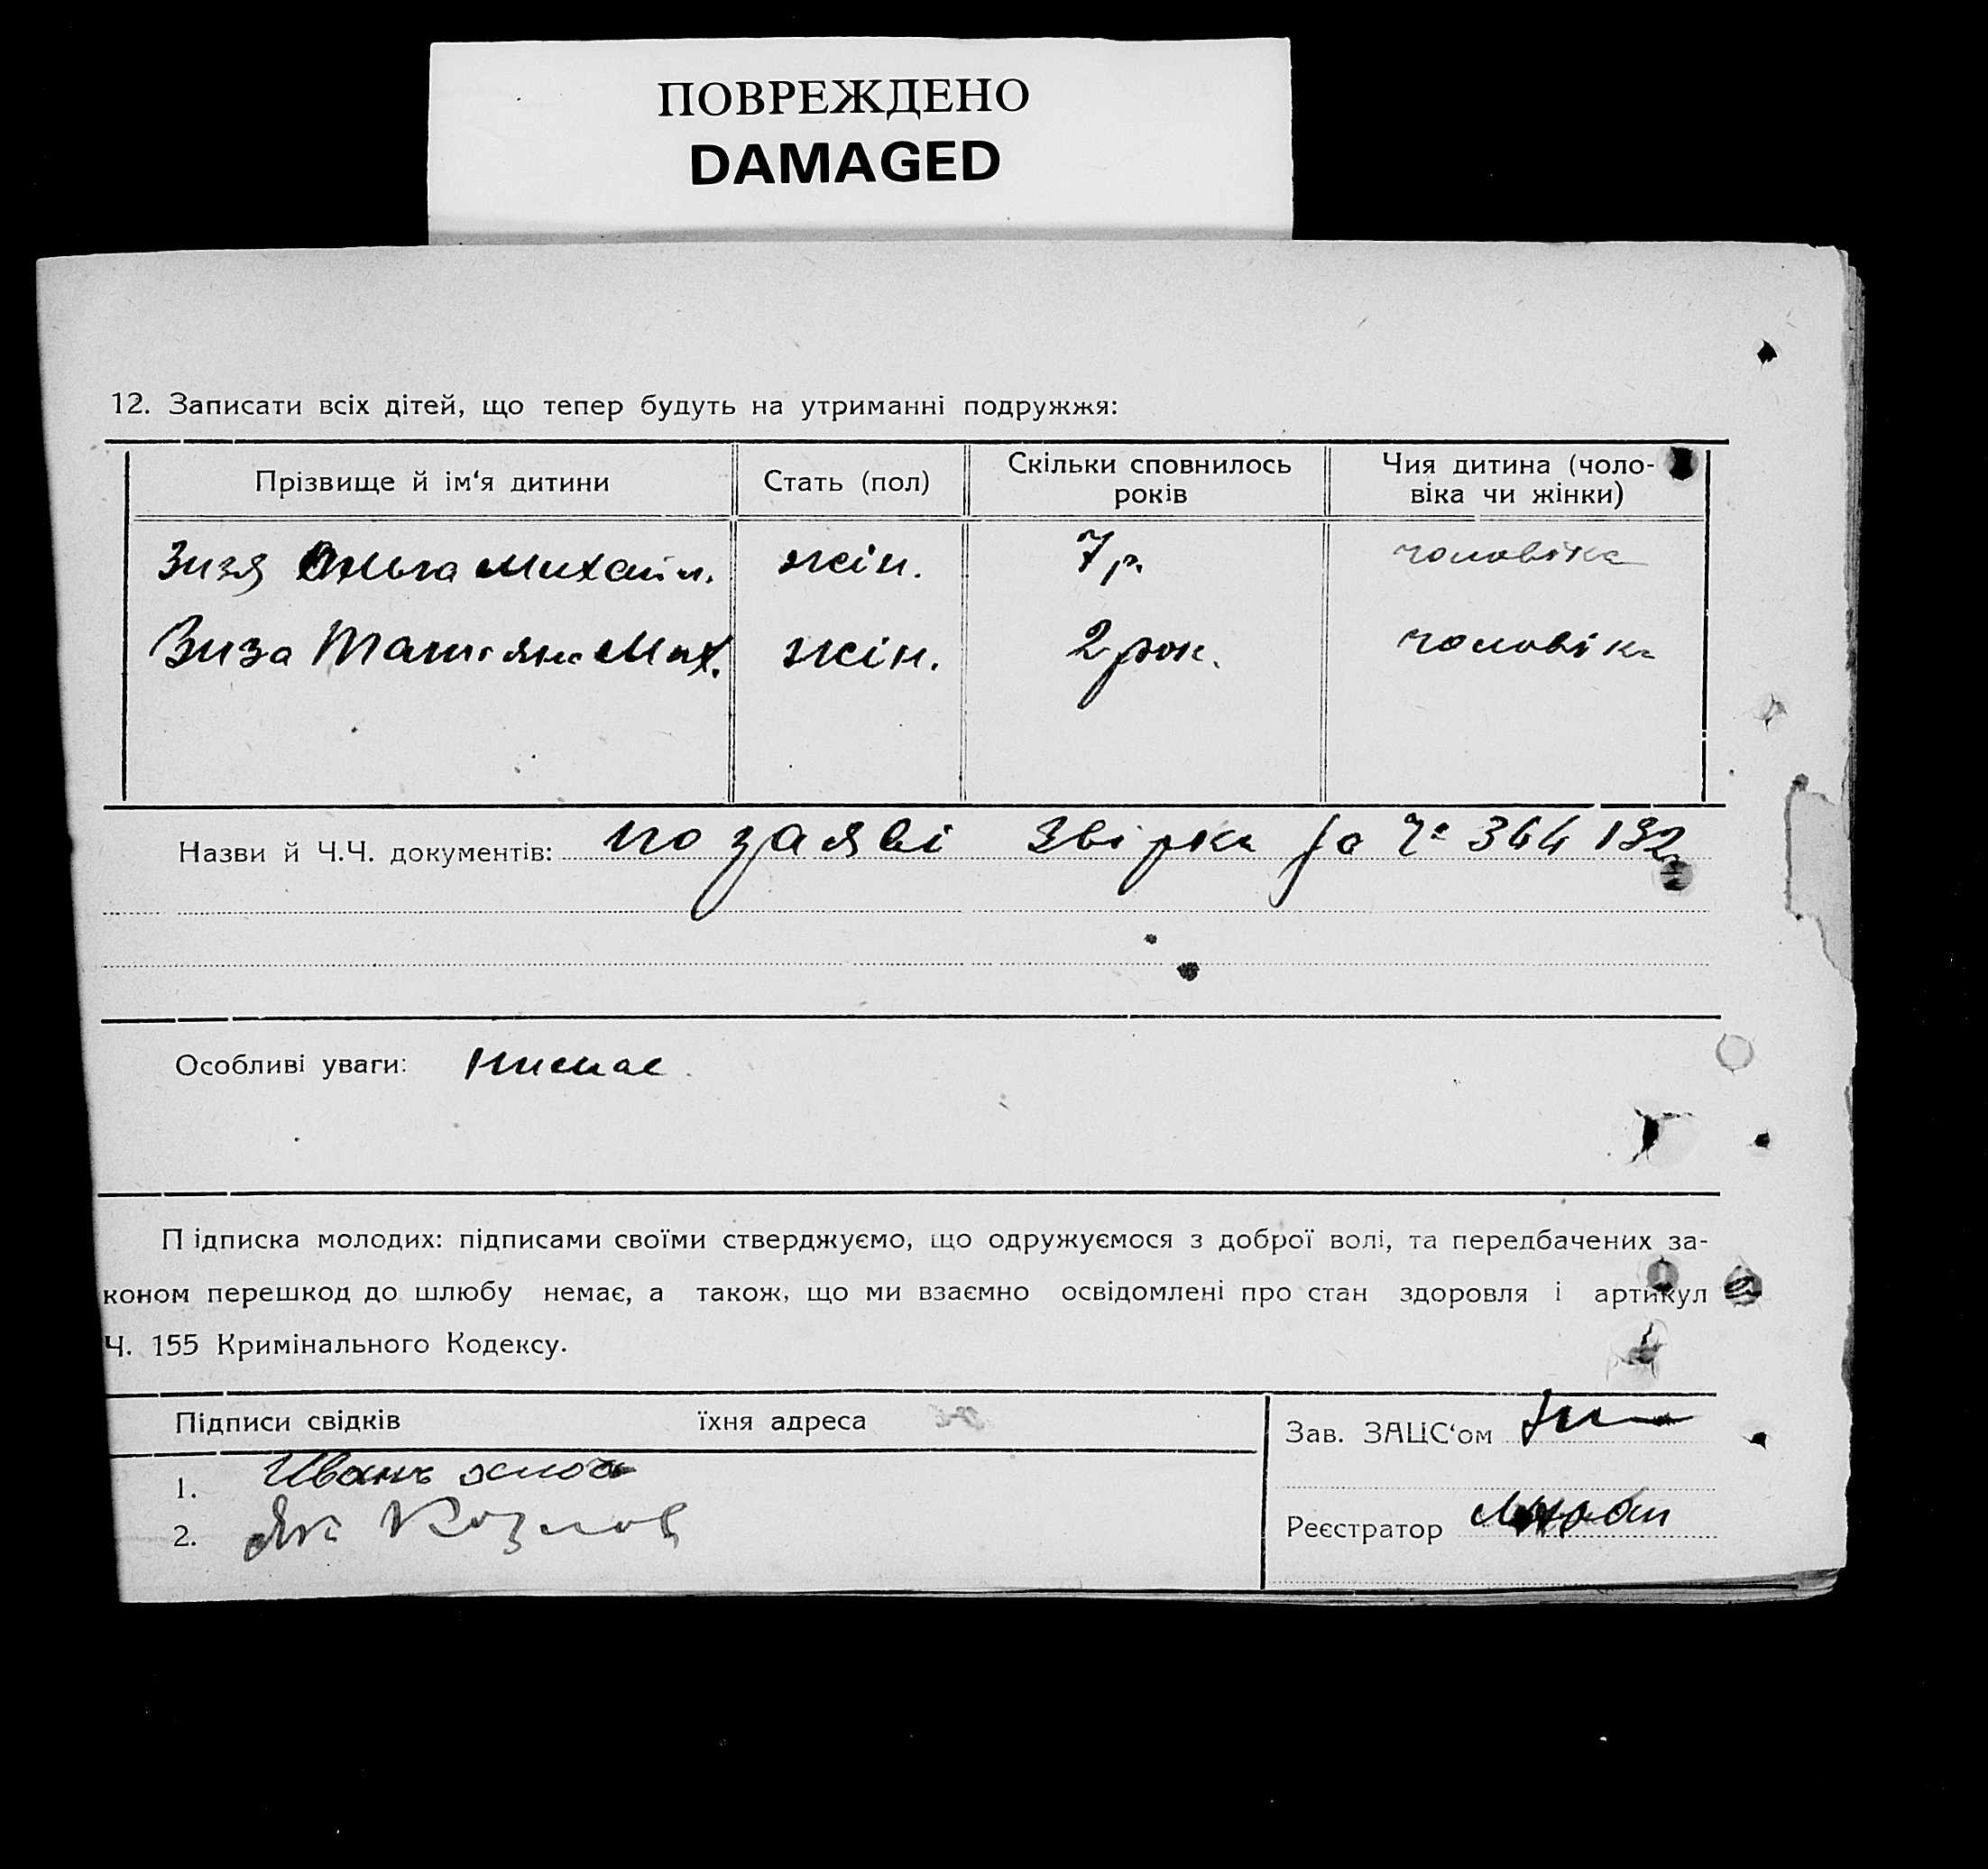 ПОВРЕЖДЕНО
DAMAGED
12. Записати всіх дітей, що тепер будуть на утриманні подружжя:
Прізвище й ім'я дитини Стать (пол) Скільки сповнилось років Чия дитина (чоловіка чи жінки)
Зизя Ольга Михайл. жін. 7 р. чоловіка
Зиза Татияна Мих. жін. 2 рок. чоловіка
Назви й Ч.Ч. документів: по заяві звірка 364 132
Особливі уваги: Нимає
Підписка молодих: підписами своїми стверджуємо, що одружуємося з доброї волі, та передбачених за-
коном перешкод до шлюбу немає, а також, що ми взаємно освідомлені про стан здоровля і артикул
Ч. 155 Кримінального Кодексу.
Підписи свідків їхня адреса
Зав. ЗАЦС'ом
1. Иванъ
2. Як Козлов
Реєстратор